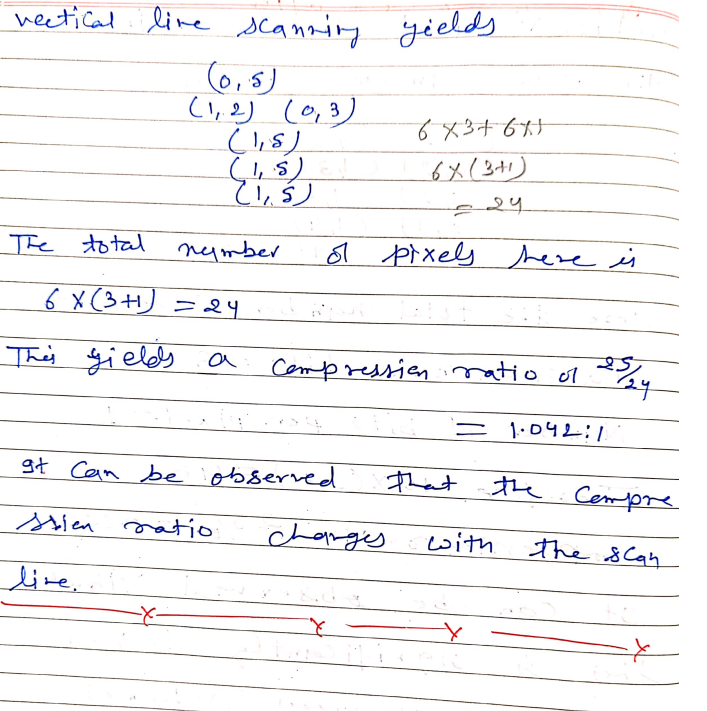 vertical line scanning yields
(0,5)
(1,2) (0,3)
(1,5)
(1,5)
(1,5)
6 × 3 + 6 × 1
6 × (3+1)
= 24
The total number of pixels here is
6 × (3+1) = 24
This yields a compression ratio of 25/24
= 1.042:1
It can be observed that the compre
ssion ratio changes with the scan
line.